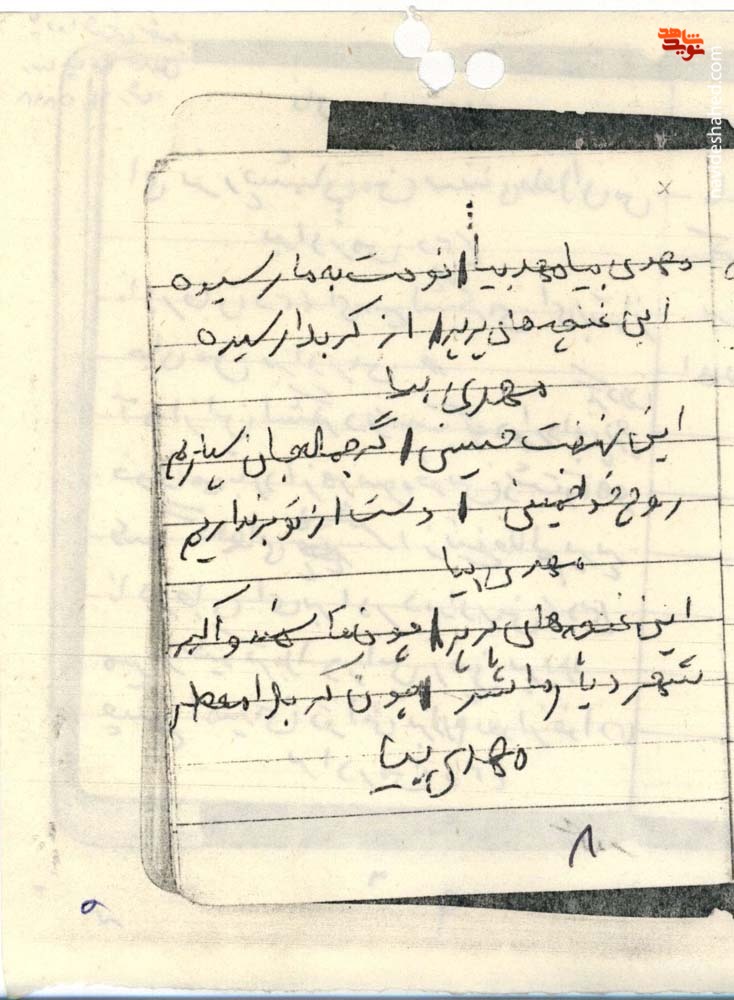 نوید شاهد
navideshahed.com
مهدی بیا مهدی بیا / نوبت به ما رسیده
این غنچه‌های پرپر / از کربلا رسیده
مهدی بیا
این نهضت حسینی / گر جمله جان سپاریم
روح خدا خمینی / دست از تو برنداریم
مهدی بیا
این غنچه‌های پرپر / چون اکبر
شهر دیار ما شد / چون کربلا معطر
مهدی بیا
۸
۵